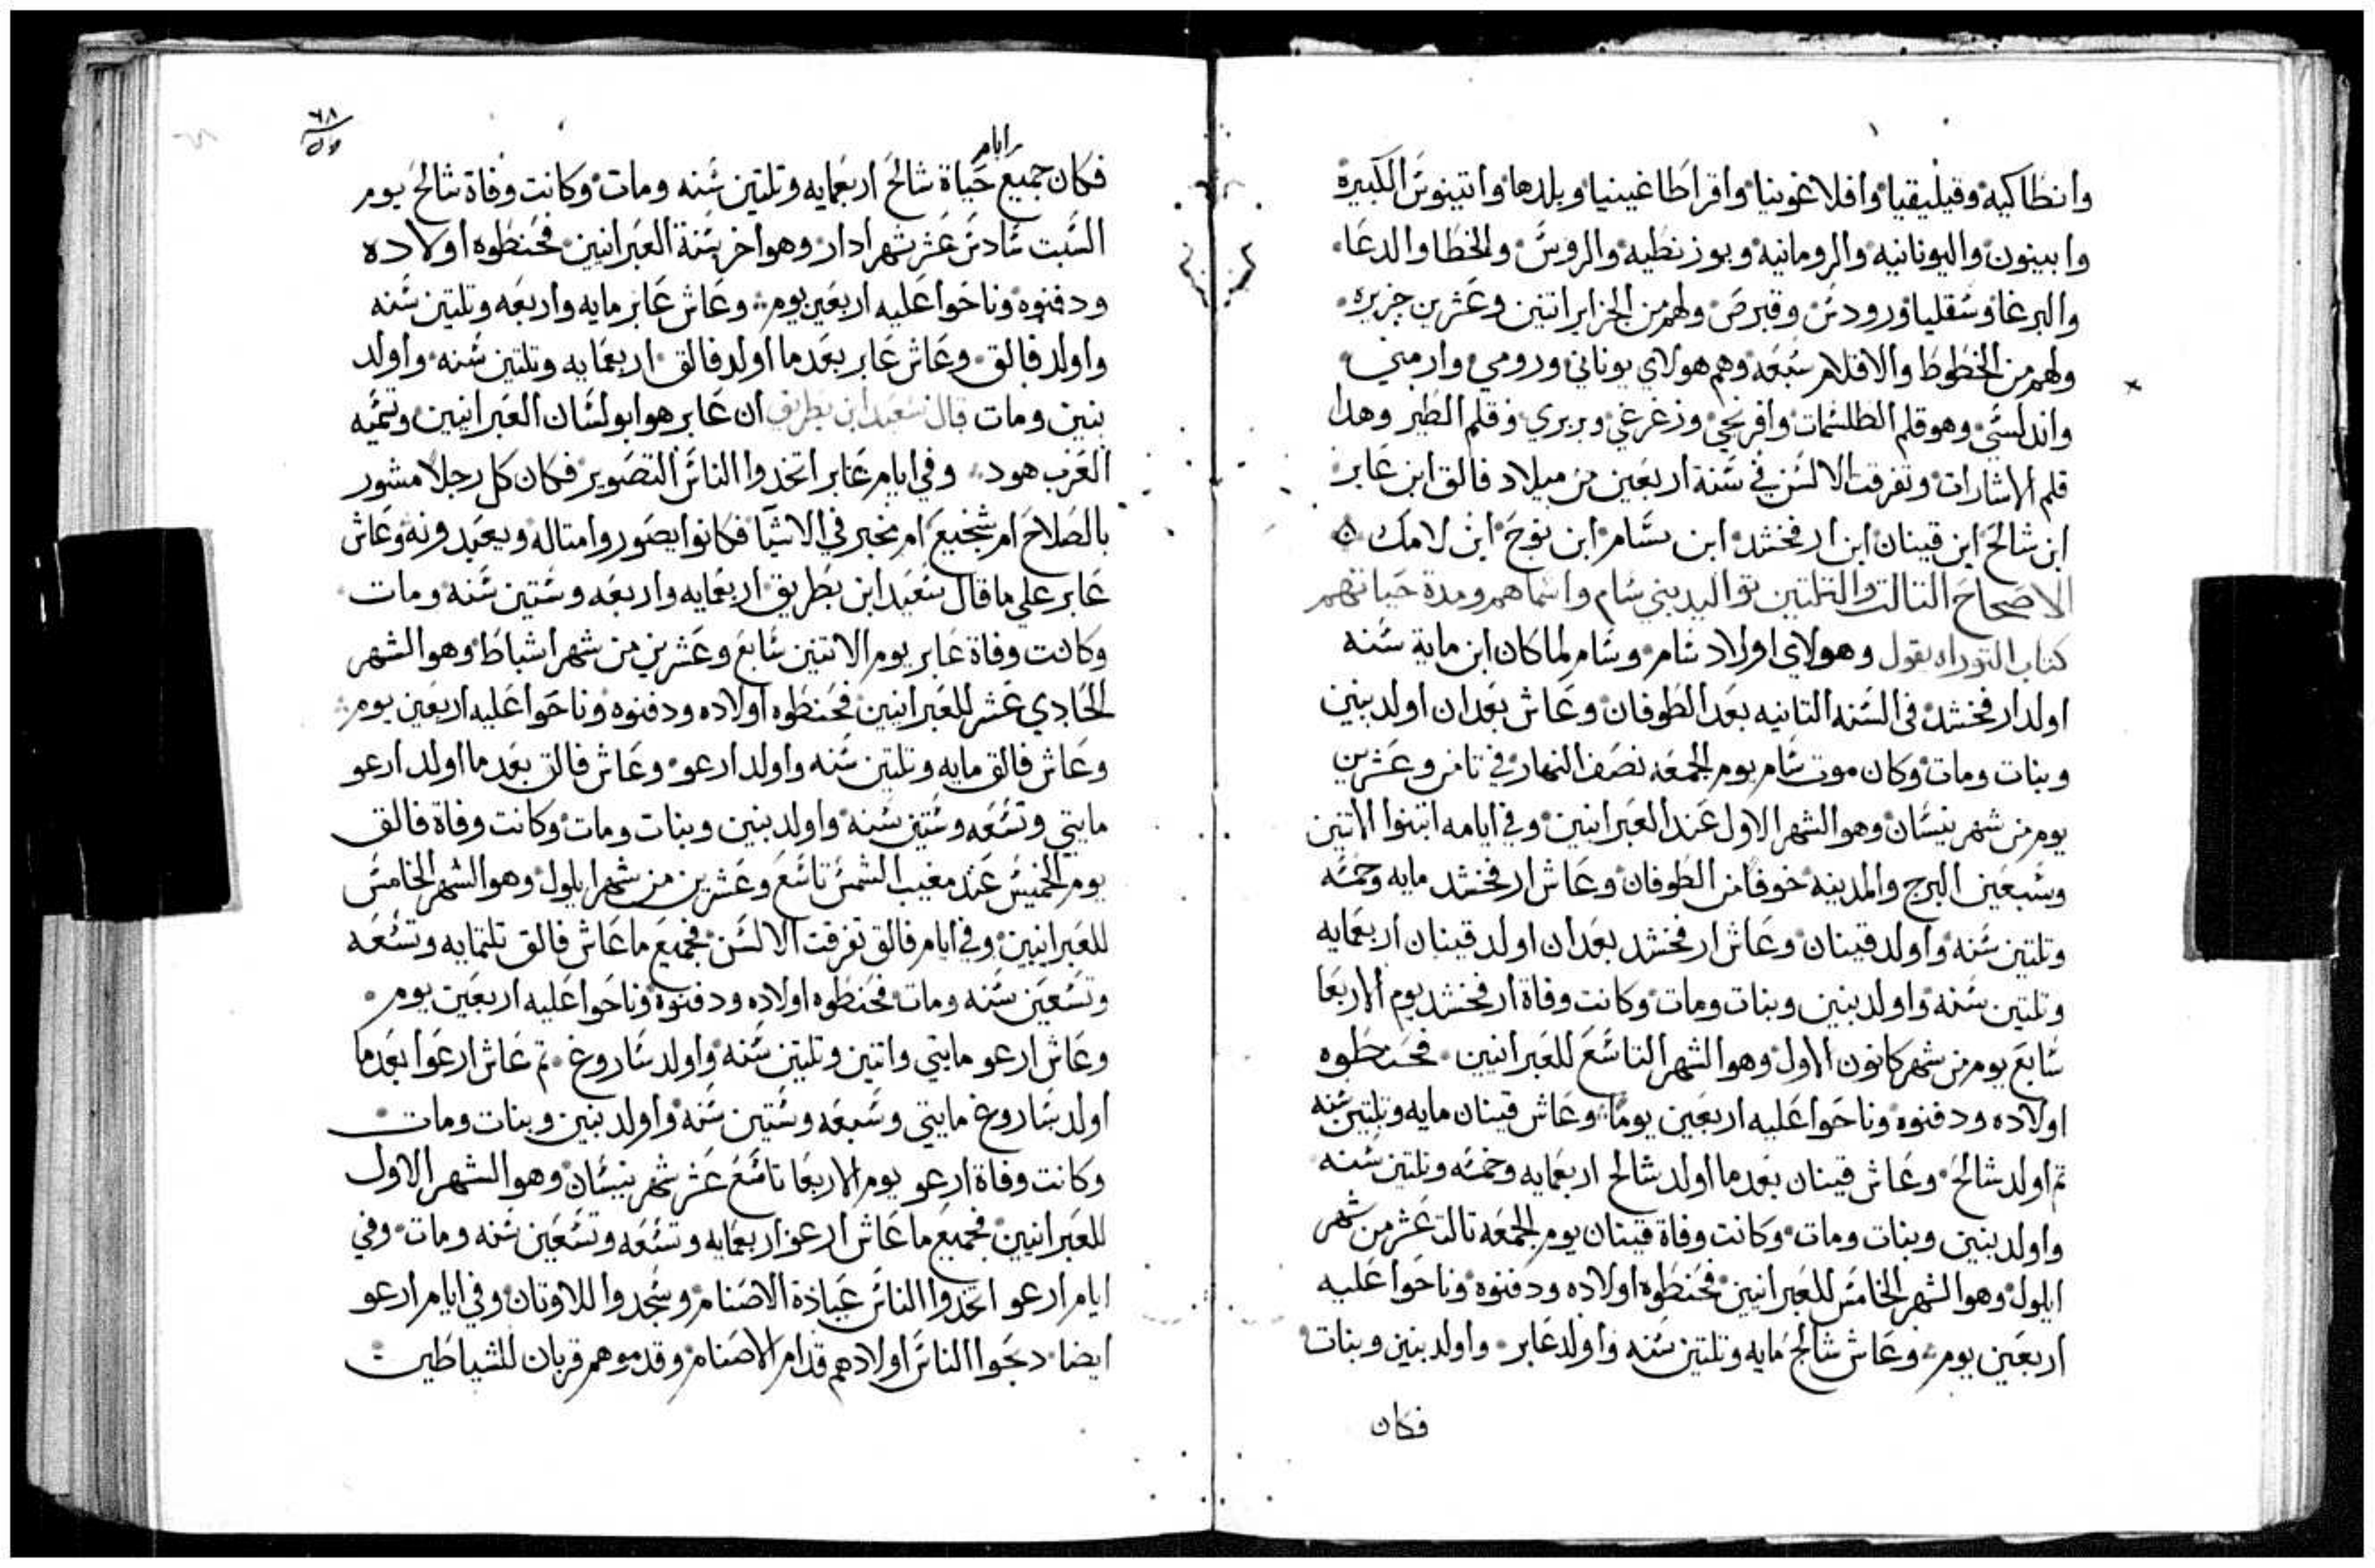 وانطاكيه وقيليقيا وافلاغونيا واقراطاغينيا وبلدها وانتينوس الكبيرة
وابينون واليونانيه والرومانيه وبوزنطيه والروس والخطا والدعا
والبرغا وسقليا ورودس وقبرص ولهم من الجزاير اتنين وعشرين جزيره
ولهم من الخطوط والاقلام سبعه وهم هولاي يوناني ورومي وارمني
واندلسي وهو قلم الطلسمات وافرنجي وزغرغي وبربري وقلم الطير وهدا
قلم الاشارات وتفرقت الالسن في سنة اربعين من ميلاد فالق ابن عابر
ابن شالح ابن قينان ابن ارفخشد ابن سام ابن نوح ابن لامك
الاصحاح التالت والتلتين تواليد بني سام واسماهم ومدة حياتهم
كتاب التوراه يقول وهولاي اولاد سام وسام لما كان ابن ماية سنه
اولد ارفخشد في السنه التانيه بعد الطوفان وعاش بعد ان اولد بنين
وبنات ومات وكان موت سام يوم الجمعه نصف النهار في تامن وعشرين
يوم من شهر نيسان وهو الشهر الاول عند العبرانيين وفي ايامه ابتنوا الاتنين
وسبعين البرج والمدينه خوفا من الطوفان وعاش ارفخشد مايه وخمسه
وتلتين سنه واولد قينان وعاش ارفخشد بعد ان اولد قينان اربعمايه
وتلتين سنه واولد بنين وبنات ومات وكانت وفاة ارفخشد يوم الاربعا
سابع يوم من شهر كانون الاول وهو الشهر التاسع للعبرانيين فحنطوه
اولاده ودفنوه وناحوا عليه اربعين يوما وعاش قينان مايه وتلتين سنه
تم اولد شالح وعاش قينان بعد ما اولد شالح اربعمايه وخمسه وتلتين سنه
واولد بنين وبنات ومات وكانت وفاة قينان يوم الجمعه تالت عشر من شهر
ايلول وهو الشهر الخامس للعبرانيين فحنطوه اولاده ودفنوه وناحوا عليه
اربعين يوم وعاش شالح مايه وتلتين سنه واولد عابر واولد بنين وبنات
فكان
٦٨
ايام
فكان جميع حياة شالح اربعمايه وتلتين سنه ومات وكانت وفاة شالح يوم
السبت سادس عشر شهر ادار وهو اخر سنة العبرانيين فحنطوه اولاده
ودفنوه وناحوا عليه اربعين يوم وعاش عابر مايه واربعه وتلتين سنه
واولد فالق وعاش عابر بعد ما اولد فالق اربعمايه وتلتين سنه واولد
بنين ومات قال سعيد ابن بطريق ان عابر هو ابو لسان العبرانيين وتسميه
العرب هود وفي ايام عابر اتخدوا الناس التصوير فكان كل رجلا مشور
بالصلاح ام شجيع ام مخبر في الاشيا فكانوا يصوروا متاله ويعبدونه وعاش
عابر علي ما قال سعيد ابن بطريق اربعمايه واربعه وستين سنه ومات
وكانت وفاة عابر يوم الاتنين سابع وعشرين من شهر اشباط وهو الشهر
الحادي عشر للعبرانيين فحنطوه اولاده ودفنوه وناحوا عليه اربعين يوم
وعاش فالق مايه وتلتين سنه واولد ارعو وعاش فالق بعد ما اولد ارعو
مايتي وتسعه وستين سنه واولد بنين وبنات ومات وكانت وفاة فالق
يوم الخميس عند مغيب الشمس تاسع وعشرين من شهر ايلول وهو الشهر الخامس
للعبرانيين وفي ايام فالق تفرقت الالسن فجميع ما عاش فالق تلتمايه وتسعه
وتسعين سنه ومات فحنطوه اولاده ودفنوه وناحوا عليه اربعين يوم
وعاش ارعو مايتي واتنين وتلتين سنه واولد ساروغ تم عاش ارعوا بعد ما
اولد ساروغ مايتي وسبعه وستين سنه واولد بنين وبنات ومات
وكانت وفاة ارعو يوم الاربعا تاسع عشر شهر نيسان وهو الشهر الاول
للعبرانيين فجميع ما عاش ارعو اربعمايه وتسعه وتسعين سنه ومات وفي
ايام ارعو اتخدوا الناس عبادة الاصنام وسجدوا للاوتان وفي ايام ارعو
ايضا دبحوا الناس اولادهم قدام الاصنام وقدموهم قربان للشياطين